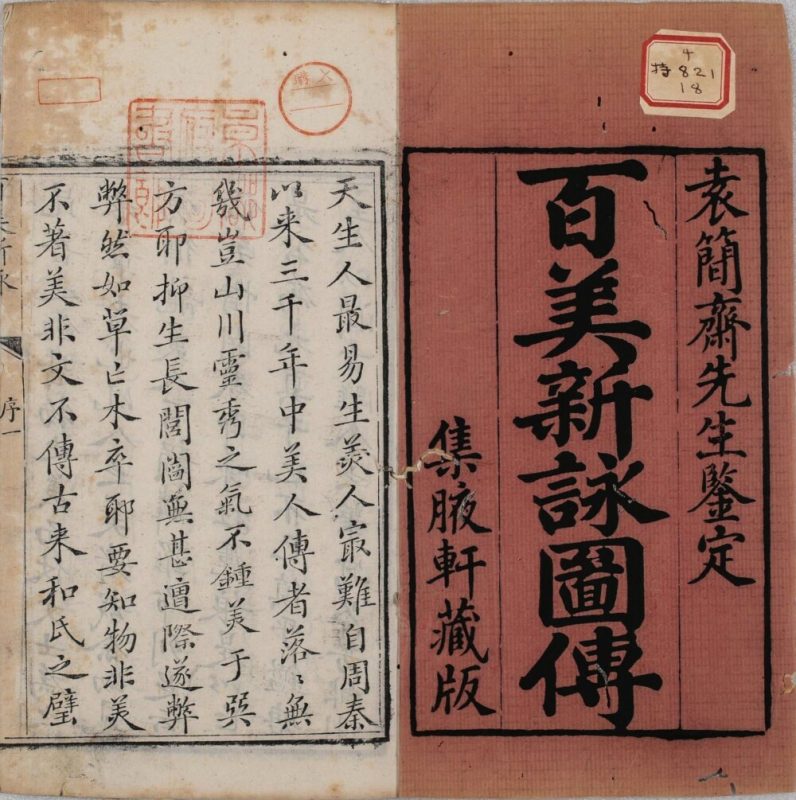 4
特821
18
袁簡齋先生鑒定
百美新詠圖傳
集腋軒藏版
天生人最易生羙人㝡難自周秦
以来三千年中美人傳者落〻無
幾豈山川靈秀之氣不鍾美于巽
方耶抑生長無甚遭際遂弊
弊然如草亡木卒耶要知物非美
不著美非文不傳古来和氏之璧
序一